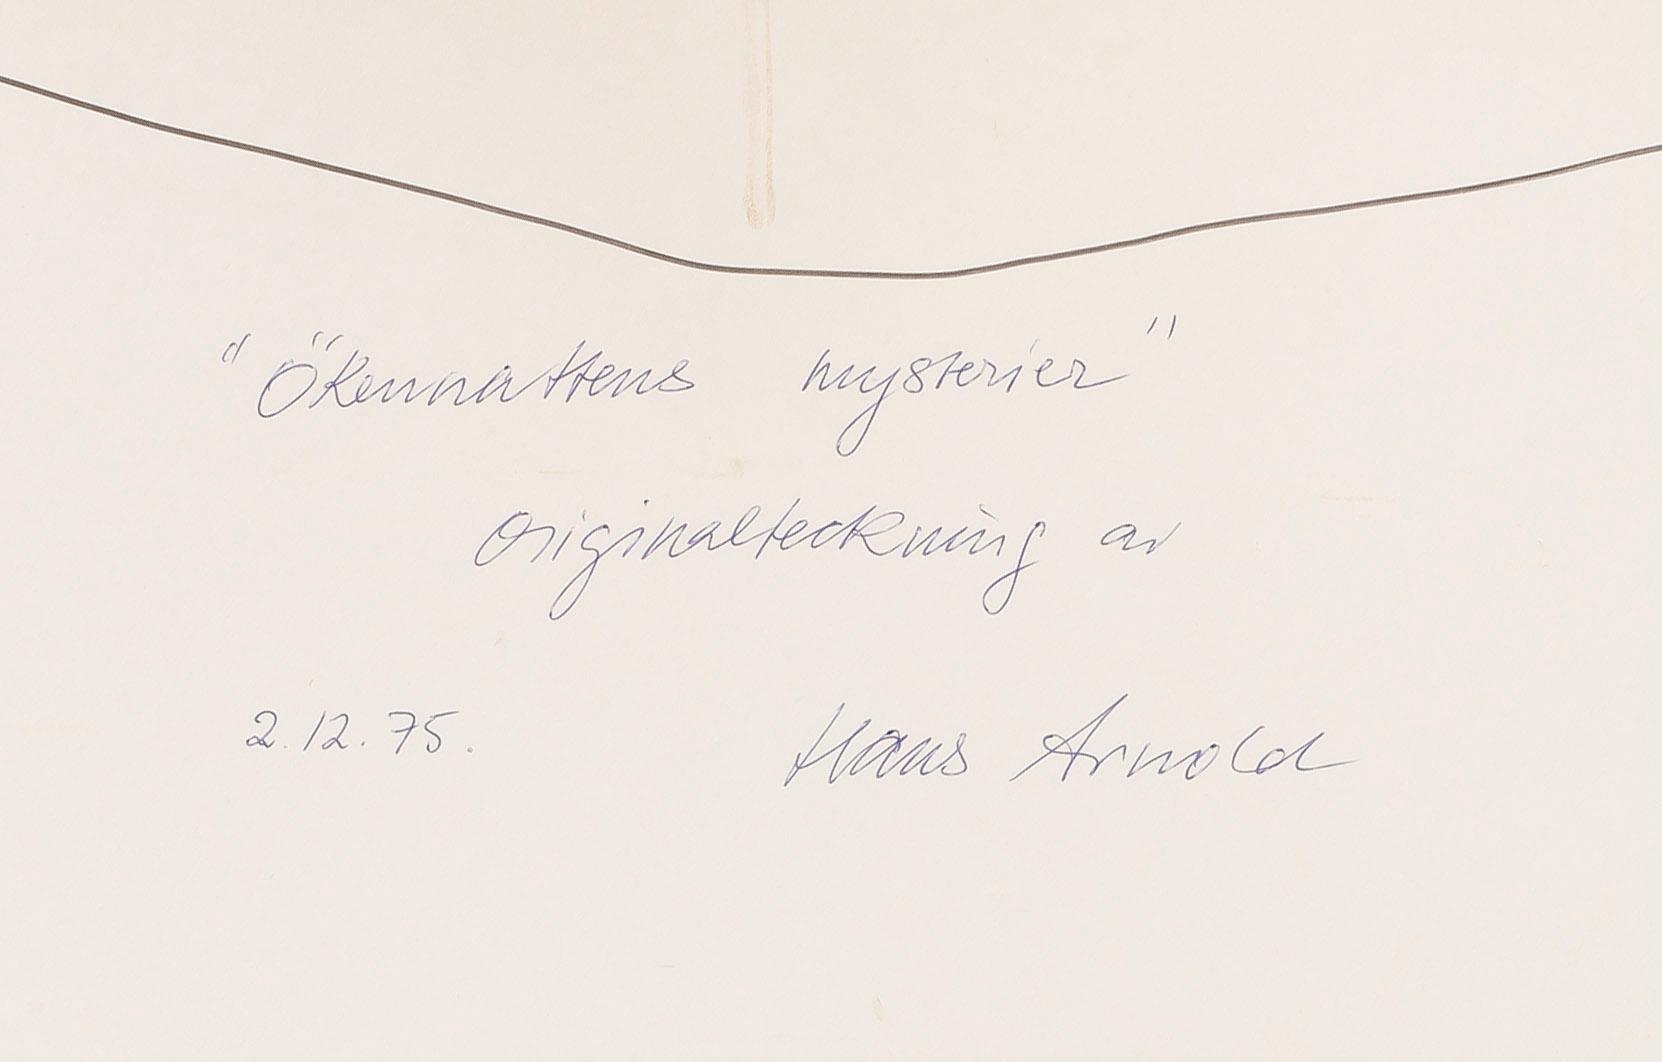 "Ökennattens mysterier"
originalteckning av
2.12.75.
Hans Arnold